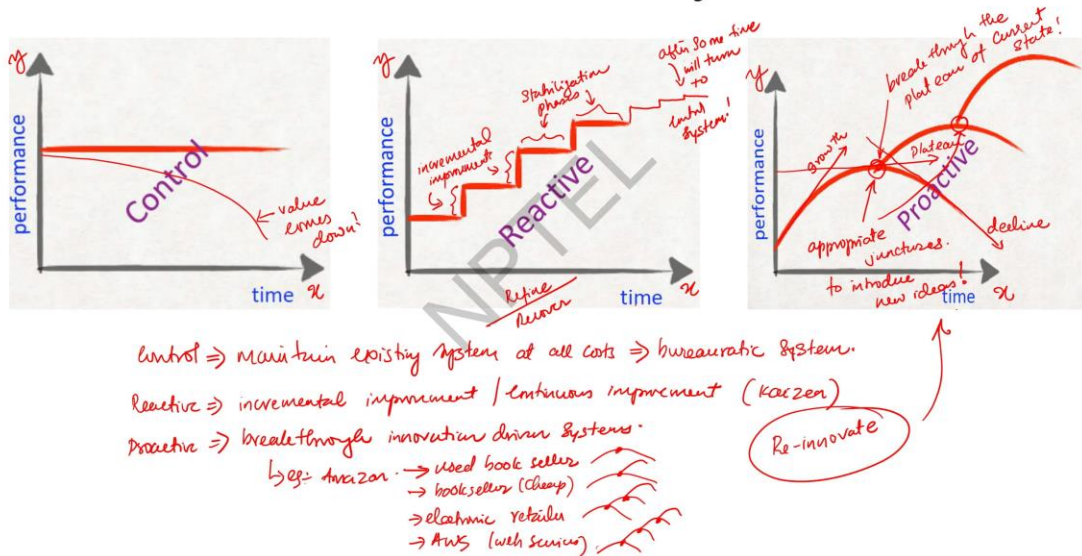 y
performance
Control
value
comes
down!
time
x
y
performance
incremental
improvement
stabilization
phases
after some time
will turn
to
control
system!
Reactive
Refine
Recover
time
x
y
performance
growth
breakthrough the
plateau of current
state!
plateau
Proactive
decline
appropriate
junctures.
to introduce
new ideas!
time
x
NPTEL
Control => maintain existing system at all costs => bureauratic system.
Reactive => incremental improvement / continuous improvement (Kaizen)
Proactive => breakthrough innovation driven systems.
eg:- Amazon. → used book seller
→ bookseller (cheap)
→ electronic retailer
→ AWS (web services).
Re-innovate